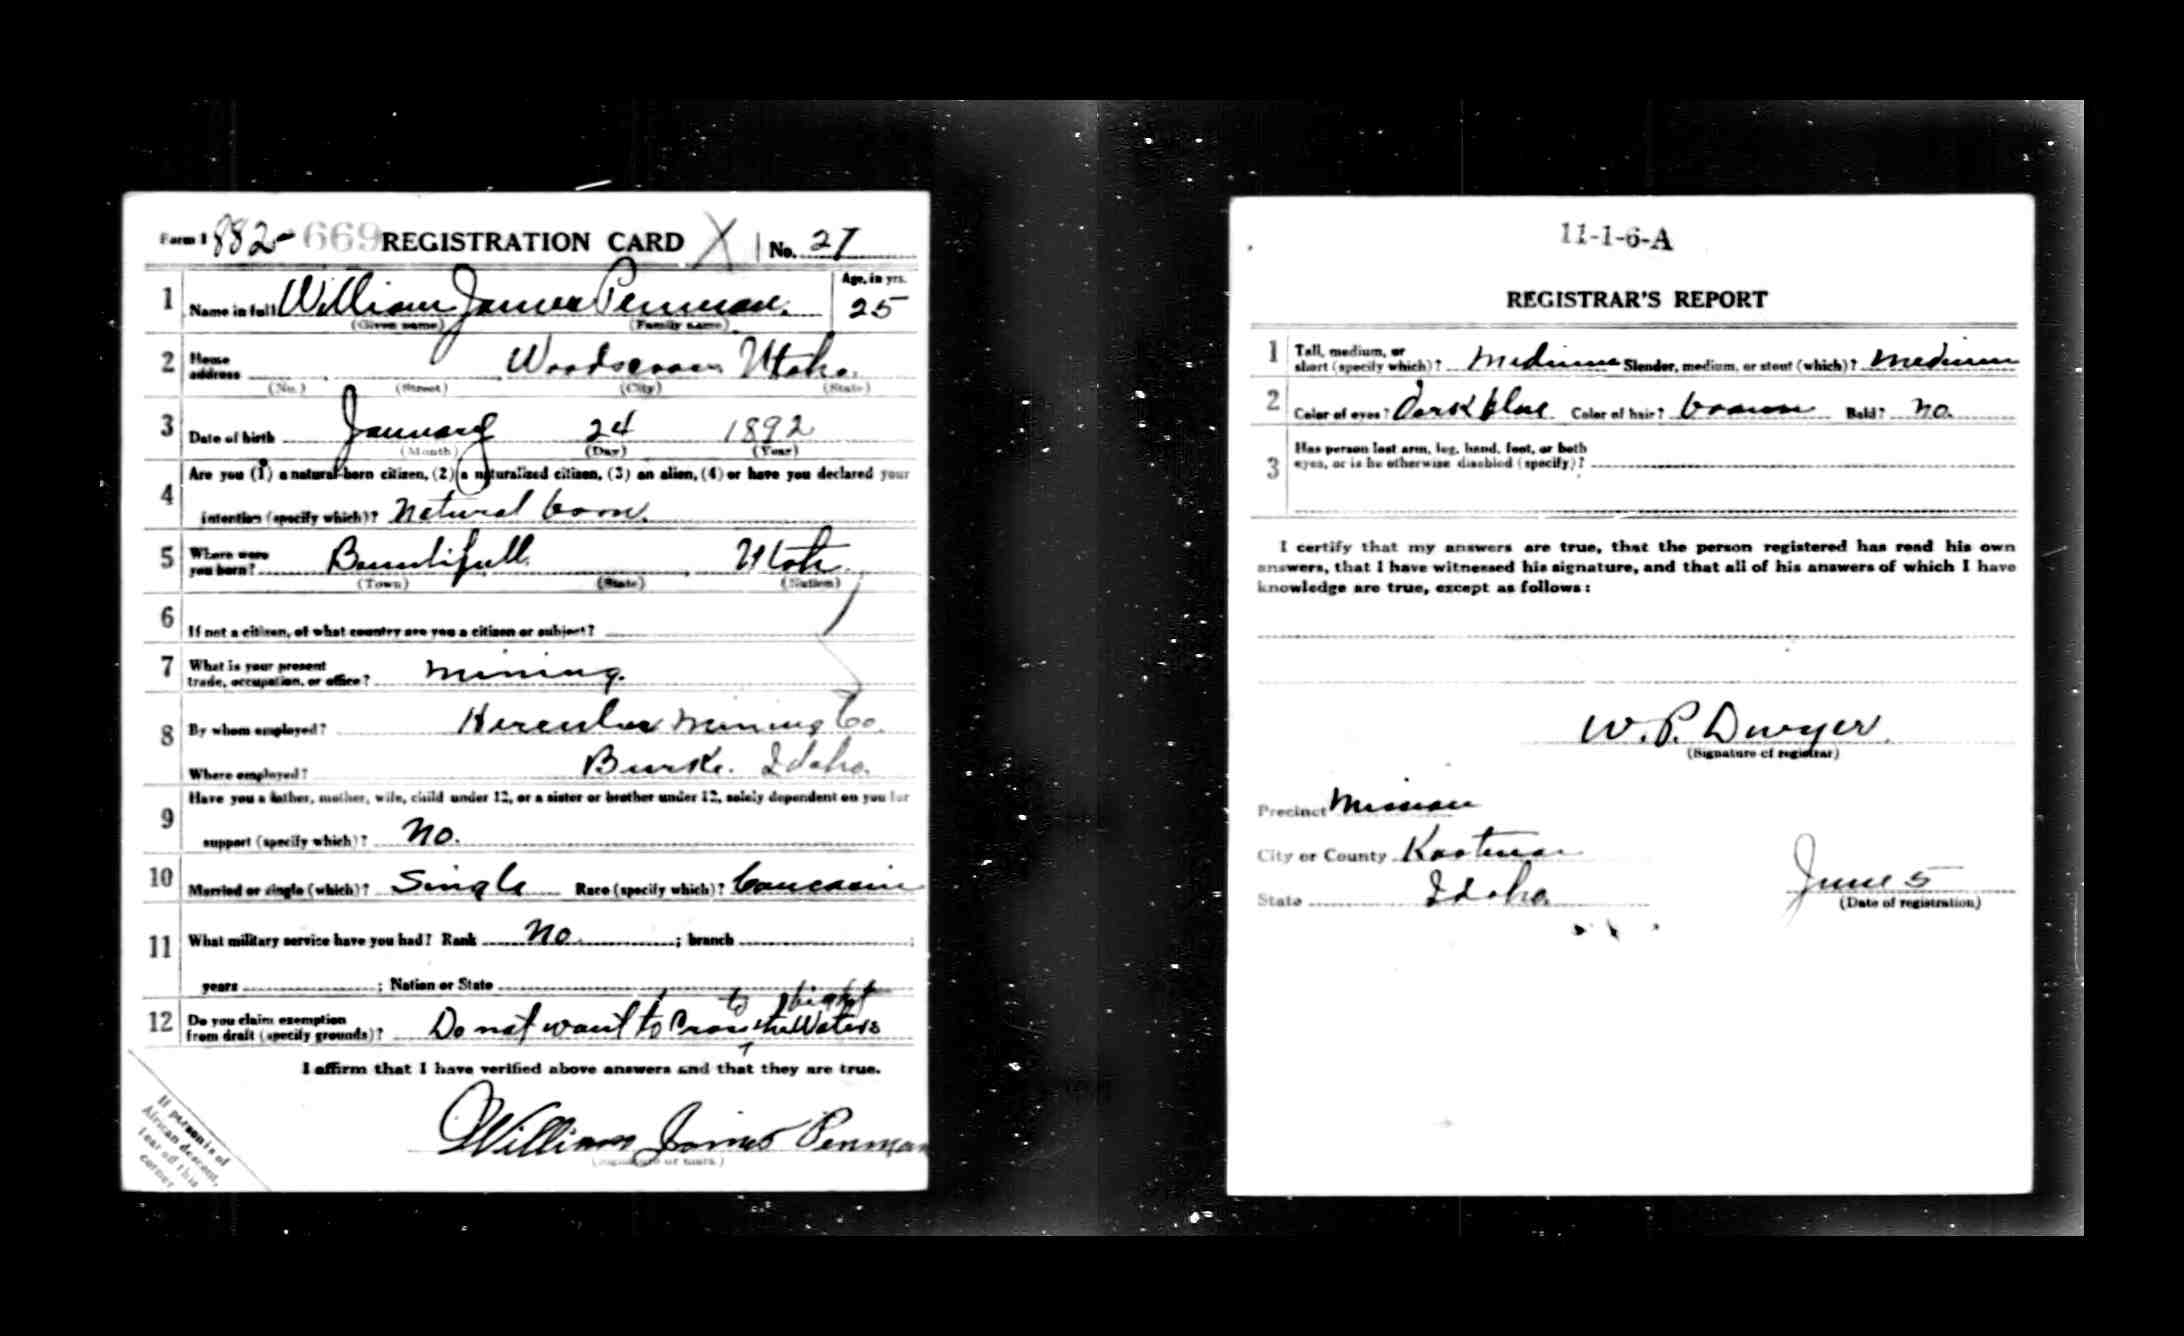 Form 1 882- 669 REGISTRATION CARD X No. 27
1 Name in full William James Penman. Age, in yrs. 25
(Given name) (Family name)
2 Home address Woodscross Utah.
(No.) (Street) (City) (State)
3 Date of birth January 24 1892
(Month) (Day) (Year)
4 Are you (1) a natural-born citizen, (2) a naturalized citizen, (3) an alien, (4) or have you declared your
intention (specify which)? Natural born.
5 Where were you born? Bountifull Utah.
(Town) (State) (Nation)
6 If not a citizen, of what country are you a citizen or subject?
7 What is your present trade, occupation, or office? Mining.
8 By whom employed? Hercules Mining Co.
Where employed? Burke. Idaho.
9 Have you a father, mother, wife, child under 12, or a sister or brother under 12, solely dependent on you for
support (specify which)? No.
10 Married or single (which)? Single Race (specify which)? Caucasin
11 What military service have you had? Rank No ; branch ;
years ; Nation or State
to fight
12 Do you claim exemption from draft (specify grounds)? Do not want to Cross the Waters
I affirm that I have verified above answers and that they are true.
William James Penman
(Signature or mark)
If person is of
African descent,
tear off this
corner
11-1-6-A
REGISTRAR'S REPORT
1 Tall, medium, or short (specify which)? Medium Slender, medium, or stout (which)? Medium
2 Color of eyes? dark blue Color of hair? brown Bald? no.
3 Has person lost arm, leg, hand, foot, or both
eyes, or is he otherwise disabled (specify)?
I certify that my answers are true, that the person registered has read his own
answers, that I have witnessed his signature, and that all of his answers of which I have
knowledge are true, except as follows:
W. P. Dwyer.
(Signature of registrar)
Precinct Mission
City or County Kootenai
State Idaho.
June 5
(Date of registration)